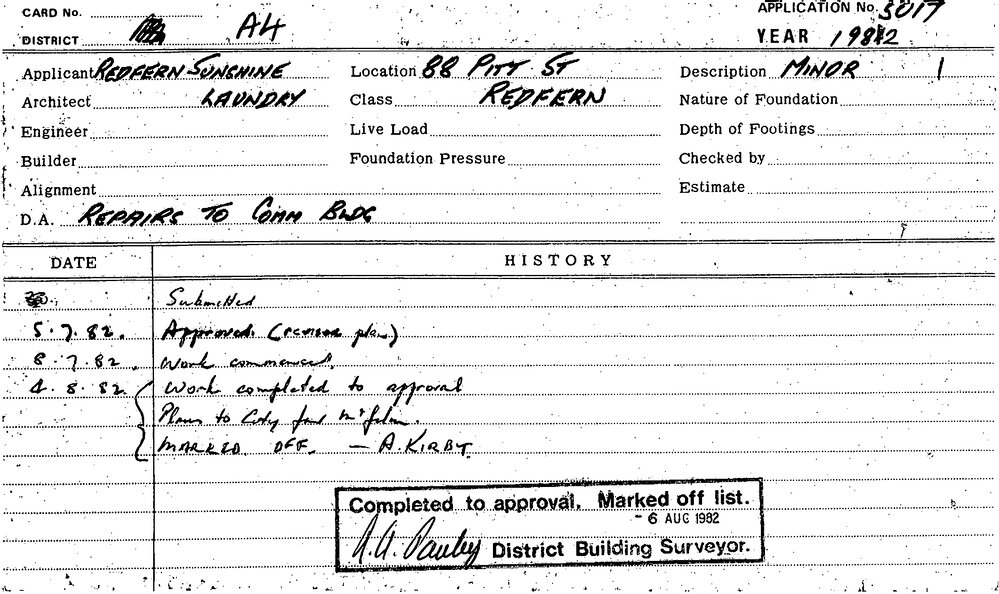 CARD No.
APPLICATION No. 5017
DISTRICT A4
YEAR 1982
Applicant REDFERN SUNSHINE Location 88 PITT ST Description MINOR 1
Architect LAUNDRY Class REDFERN Nature of Foundation
Engineer Live Load Depth of Footings
Builder Foundation Pressure Checked by
Alignment Estimate
D.A. REPAIRS TO COMM BLDG
DATE HISTORY
Submitted
5.7.82. Approved. (revised plan)
8.7.82. Work commenced.
4.8.82. Work completed to approval
Plans to City for M'film.
MARKED OFF. — A. KIRBY.
Completed to approval. Marked off list.
- 6 AUG 1982
District Building Surveyor.